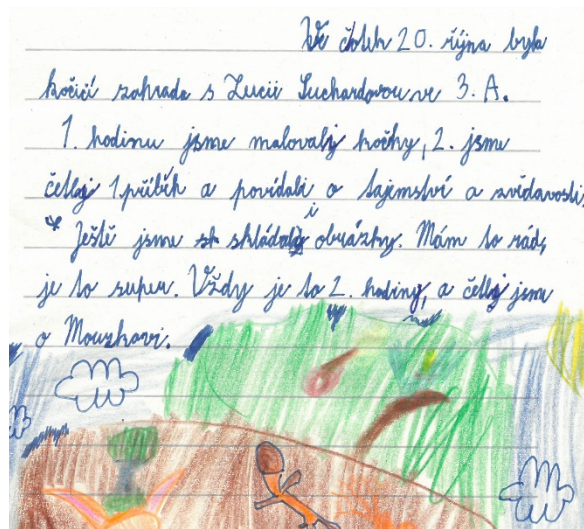 Ve čtvrtek 20. října byla
kočičí zahrada s Lucií Suchardovou ve 3. A.
1. hodinu jsme malovaly kočky, 2. jsme
četly 1. příběh a povídali o tajemství a zvídavosti,
Ještě jsme skládaly i obrázky. Mám to rád,
je to super. Vždy je to 2. hodiny, a četly jsme
o Mourkovi.